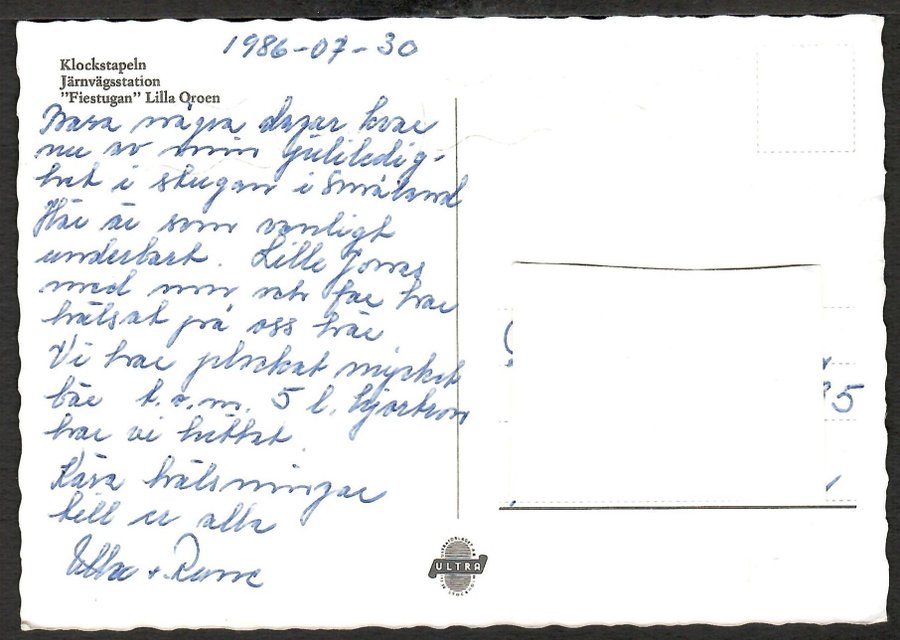 1986-07-30
Klockstapeln
Järnvägsstation
"Fiestugan" Lilla Oroen
Bara några dagar kvar
nu av min juliledig-
het i stugan i Småland
Här är som vanligt
underbart. Lille Jonas
med mor och far har
hälsat på oss här
Vi har plockat mycket
bär t.o.m. 5 l. hjortron
har vi hittat
Kära hälsningar
till er alla
Ulla + Rune
5
ULTRA